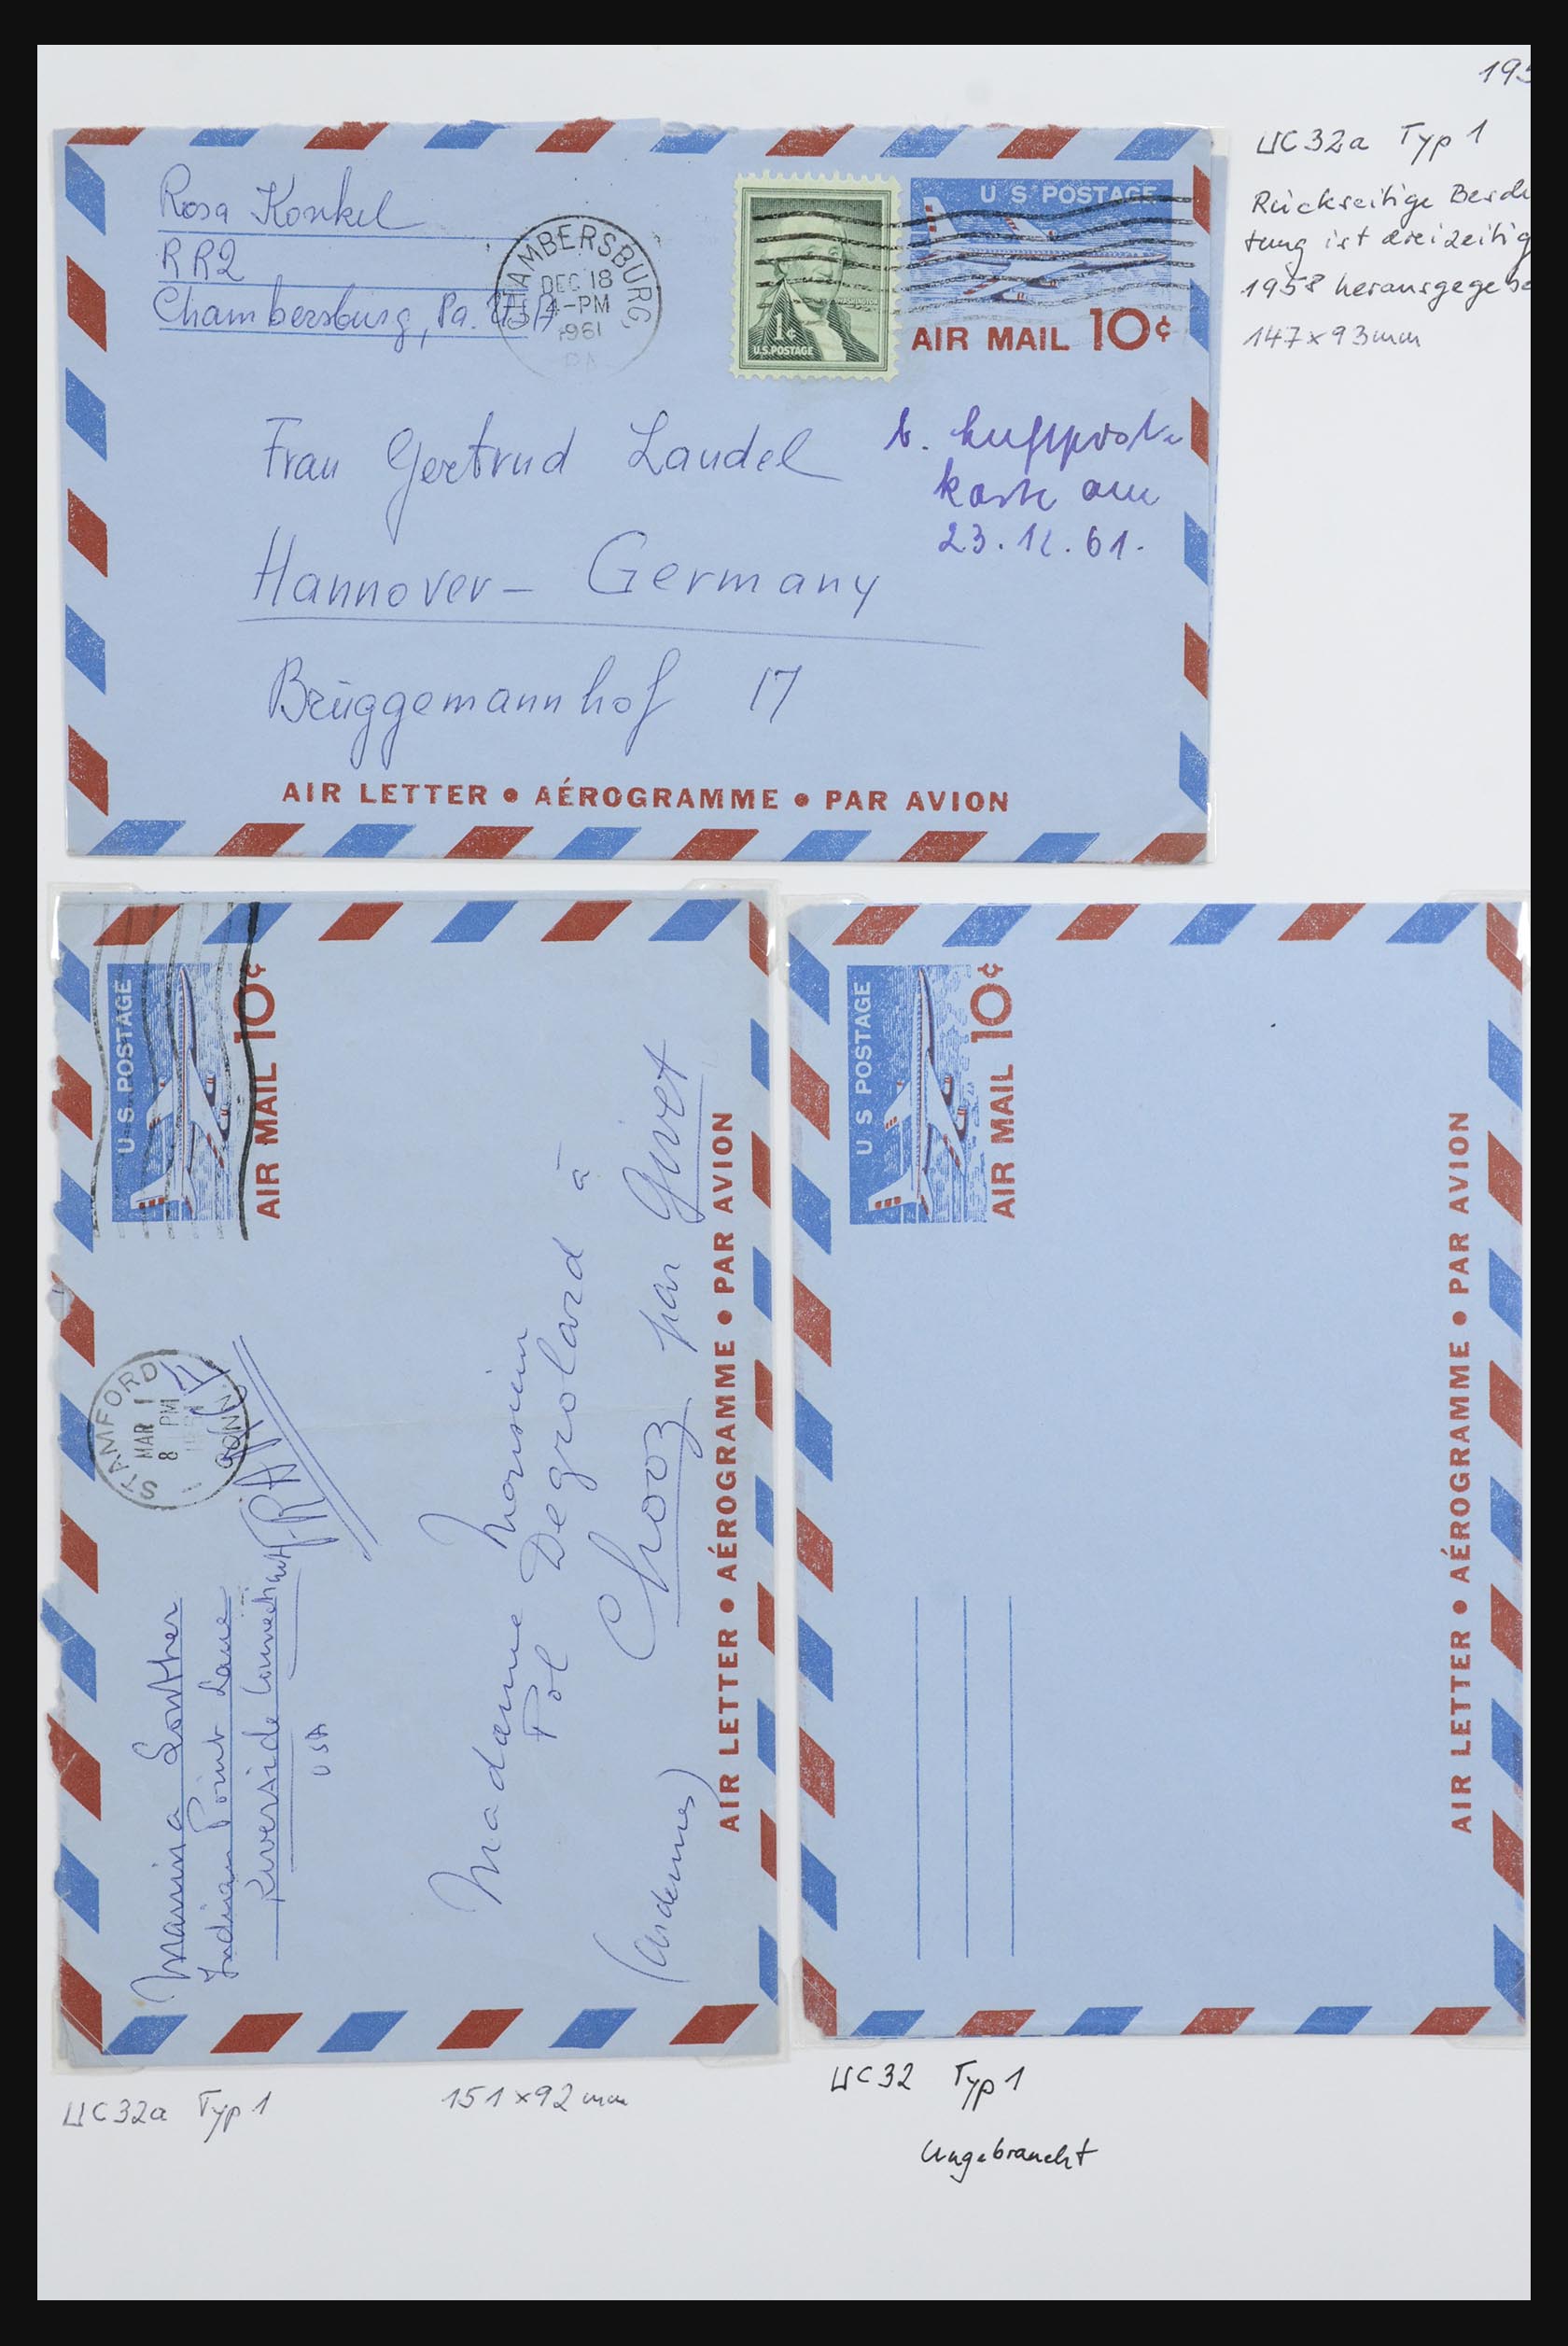 195
UC32a Typ 1
Rückseitige Besch
tung ist dreizeilig
1958 herausgegebe
147x93mm
Rosa Konkel
RR2
Chambersburg, Pa. USA
CHAMBERSBURG,
DEC 18
4-PM
1961
PA
1¢
U.S. POSTAGE
WASHINGTON
U S POSTAGE
AIR MAIL 10¢
Frau Gertrud Laudel
Hannover - Germany
Brüggemannhof 17
b. Luftpost-
karte am
23.12.61.
AIR LETTER • AÉROGRAMME • PAR AVION
U S POSTAGE
AIR MAIL 10¢
STAMFORD
MAR 1
8 PM
CONN.
Marina Lowther
Indian Point Lane
Riverside Connecticut
USA
Madame Monsieur
Pol Degrolard à
Chooz par Givet
(Ardennes)
AIR LETTER • AÉROGRAMME • PAR AVION
U S POSTAGE
AIR MAIL 10¢
AIR LETTER • AÉROGRAMME • PAR AVION
UC32a Typ 1
151x92mm
UC32 Typ 1
Ungebraucht